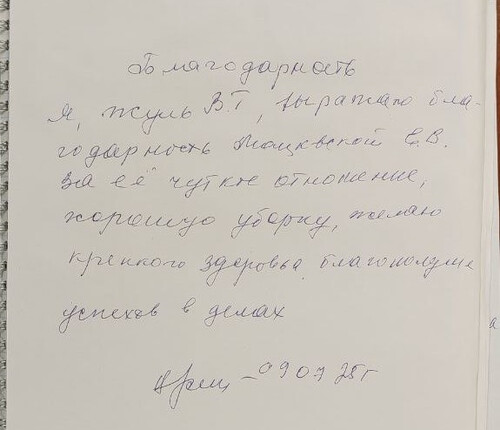 Благодарность
Я, Жуль В.Г, выражаю бла-
годарность Мацкевской Е.В.
За её чуткое отношение,
хорошую уборку, желаю
крепкого здоровья благополучие
успехов в делах
09 07 25 г